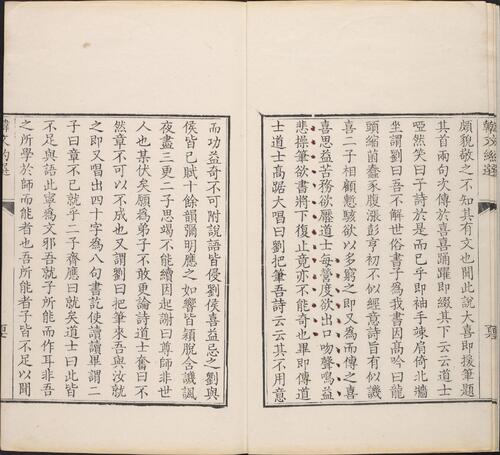 頗貌敬之不知其有文也聞此說大喜即援筆題
其首兩句次傳於喜喜踊躍即綴其下云云道士
啞然笑曰子詩於是而已乎即袖手竦肩倚北牆
坐謂劉曰吾不解世俗書子為我書因高吟曰龍
頭縮菌蠢豕腹漲彭亨初不似經意詩旨有似譏
喜二子相顧慙駭欲以多窮之即又為而傳之喜
喜思益苦務欲壓道士每營度欲出口吻聲鳴益
悲操筆欲書將下復止竟亦不能奇也畢即傳道
士道士高踞大唱曰劉把筆吾詩云云其不用意
而功益奇不可附說語皆侵劉侯喜益忌之劉與
侯皆已賦十餘韻彌明應之如響皆穎脫含譏諷
夜盡三更二子思竭不能續因起謝曰尊師非世
人也某伏矣願為弟子不敢更論詩道士奮曰不
然章不可以不成也又謂劉曰把筆來吾與汝就
之即又唱出四十字為八句書訖使讀讀畢謂二
子曰章不已就乎二子齊應曰就矣道士曰此皆
不足與語此寧為文邪吾就子所能而作耳非吾
之所學於師而能者也吾所能者子皆不足以聞